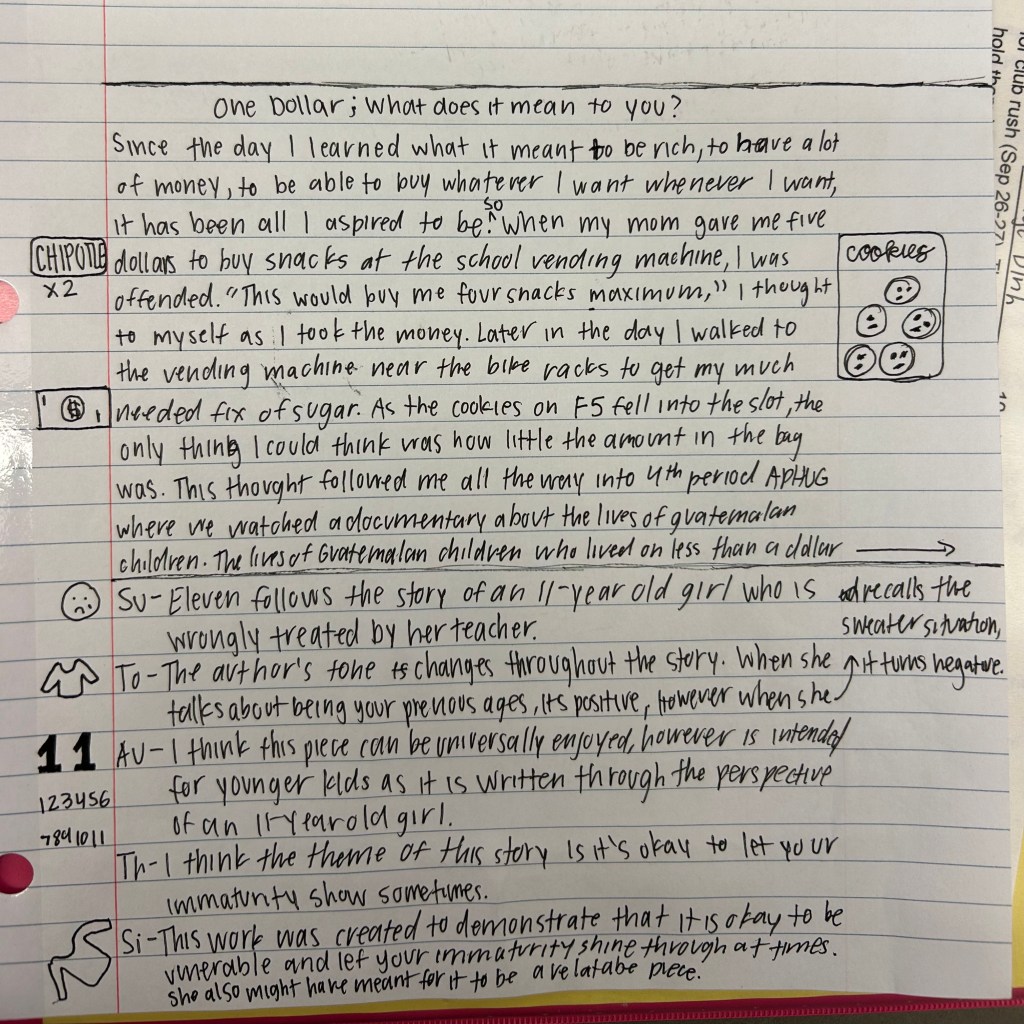 for club rush (Sep 26-27)
hold th
Dinh
One Dollar; What does it mean to you?
Since the day I learned what it meant to be rich, to have a lot
of money, to be able to buy whatever I want whenever I want,
it has been all I aspired to be. so when my mom gave me five
CHIPOTLE
x2
dollars to buy snacks at the school vending machine, I was
offended. "This would buy me four snacks maximum," I thought
to myself as I took the money. Later in the day I walked to
the vending machine near the bike racks to get my much
cookies
$
needed fix of sugar. As the cookies on F5 fell into the slot, the
only thing I could think was how little the amount in the bag
was. This thought followed me all the way into 4th period APHUG
where we watched a documentary about the lives of guatemalan
children. The lives of Guatemalan children who lived on less than a dollar →
Su- Eleven follows the story of an 11-year old girl who is
wrongly treated by her teacher.
To- The author's tone changes throughout the story. When she
talks about being your previous ages, its positive, however when she
recalls the
sweater situation,
it turns negative.
11
123456
7891011
Au- I think this piece can be universally enjoyed, however is intended
for younger kids as it is written through the perspective
of an 11 year old girl.
Th- I think the theme of this story is it's okay to let your
immaturity show sometimes.
Si- This work was created to demonstrate that it is okay to be
vunerable and let your immaturity shine through at times.
she also might have meant for it to be a relatabe piece.